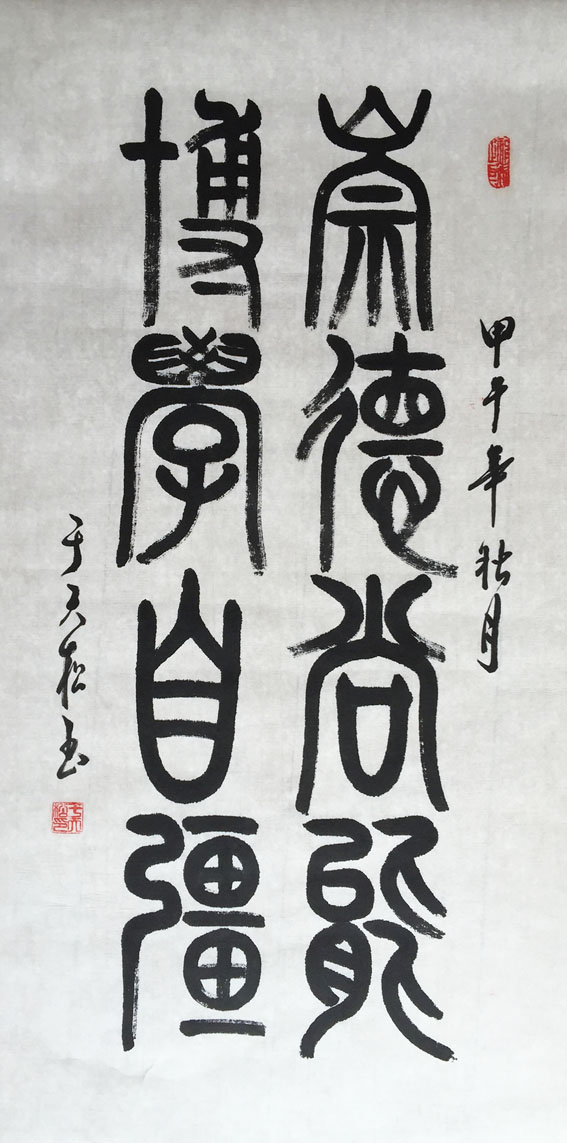 甲午年秋月
崇德尚能
博學自彊
于天松书